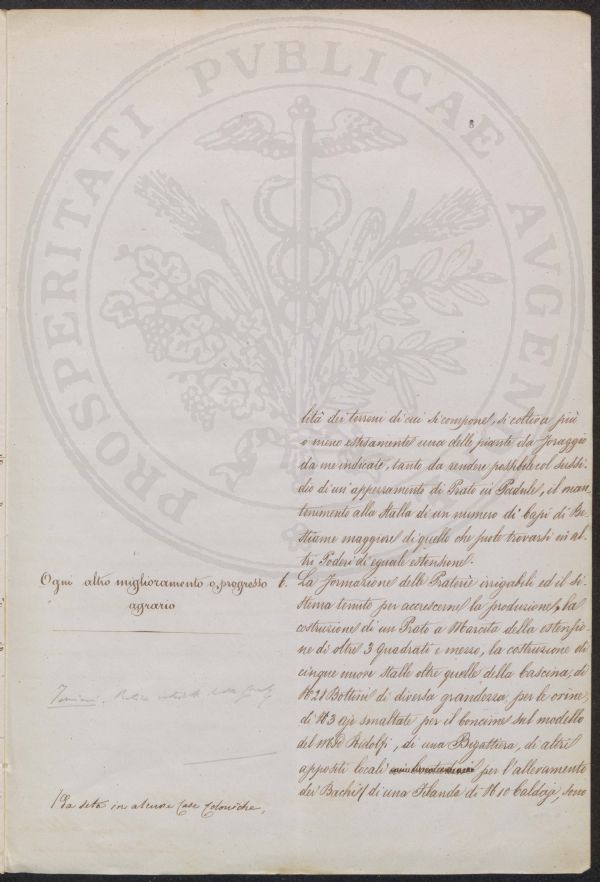 PROSPERITATI PVBLICAE AVGENDAE
8
lità dei terreni di cui si compone, si coltiva più
o meno estesamente una delle piante da foraggio
da me indicate, tanto da rendere possibile col sussi-
dio di un'appezzamento di Prato in Padule, il man-
tenimento alla stalla di un numero di Capi di Be-
stiame maggiore di quello che puole trovarsi in al-
tri Poderi di eguale estensione.
Ogni altro miglioramento o, progresso
agrario
6. La formazione delle Praterie irrigabili ed il si-
stema tenuto per accrescerne la produzione, la
costruzione di un Prato a Marcita della estensio-
ne di oltre 3 quadrati e mezzo, la costruzione di
cinque nuove stalle oltre quelle della Cascina, di
N. 21 Bottini di diversa grandezza per le orine,
di N. 3 aje smaltate per il concime sul modello
del Ridolfi, di una Bigattiera, di altri
appositi locali per l'allevamento
dei Bachi / di una Filanda di N. 10 Caldaje, sono
/ Da seta in alcune Case Coloniche,